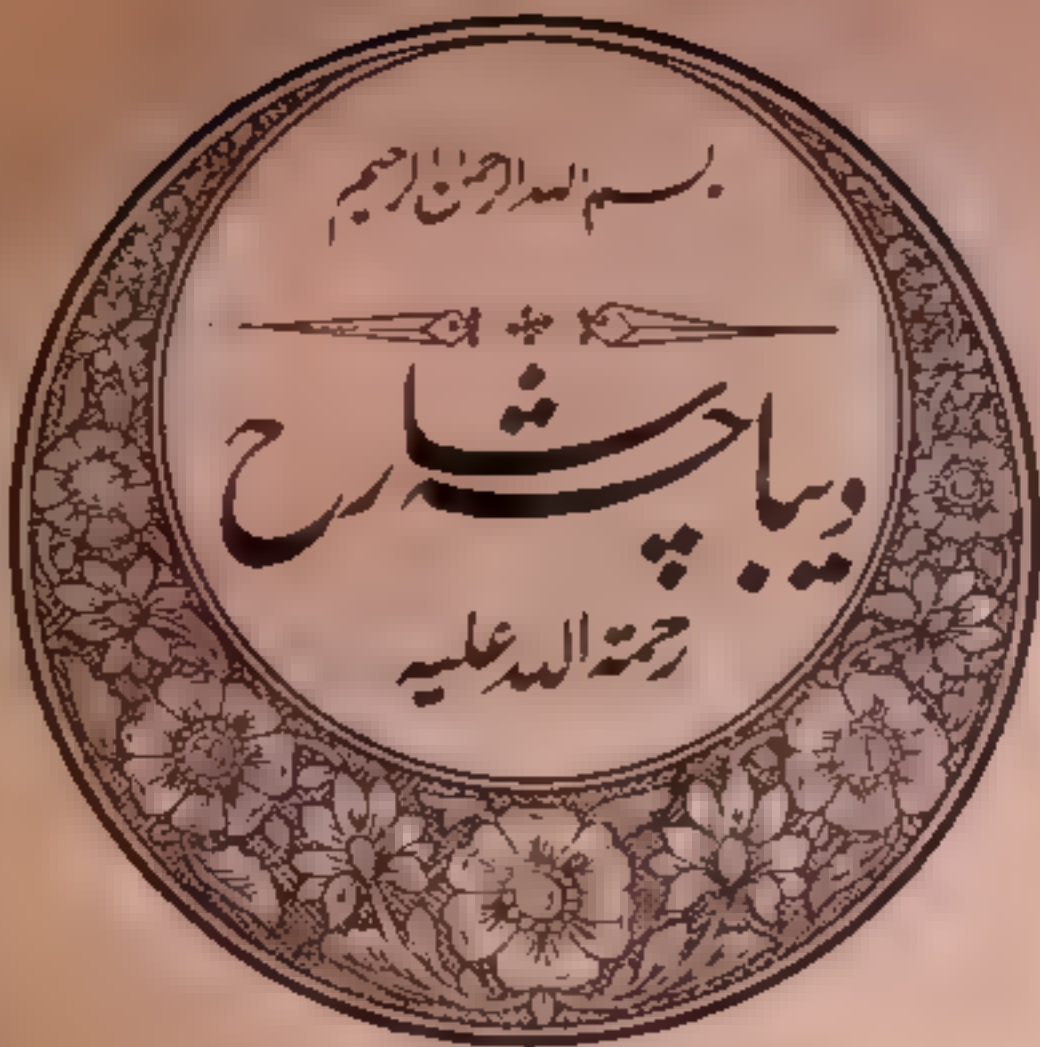 بسم اللہ الرحمن الرحیم
دیباچہ شارح
رحمۃ اللہ علیہ